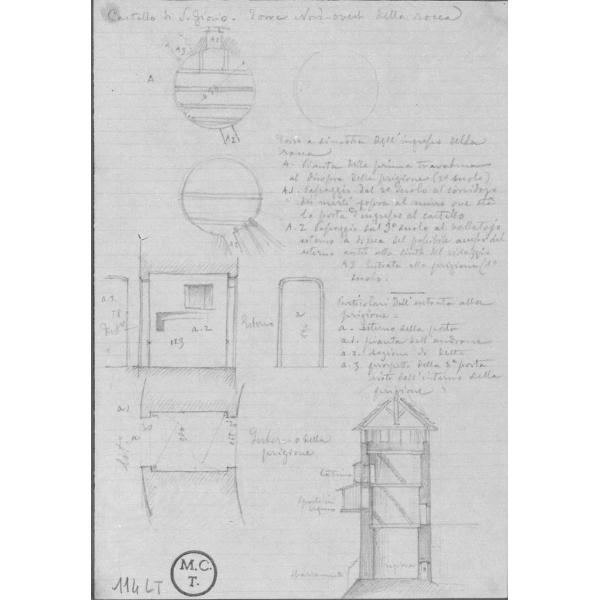 Castello di S. Giorio - Torre Nord-ovest della rocca
A
A1
A3
A2
Torre a sinistra dell'ingresso della
rocca
A - Pianta della prima travatura
al disopra della prigione (2° suolo)
A.1. Passaggio dal 2° suolo al corridojo
dei merli sopra al muro ove sta
la porta d'ingresso al castello
A.2 Passaggio sul 3° suolo al ballatojo
esterno a difesa del
esterno
A3 Entrata alla prigione (1°
suolo.
Particolari dell'entrata alla
prigione -
a - esterno della porta
a.1. pianta dell'androne
a.2. sezione di detto
a.3. prospetto della 2ª porta
visto dall'interno della
prigione
a.3.
a.2
123
Esterno
a
a.1
a
Interno della
prigione
Latrina
Sporto in
legno
prigione
114 LT
M.C.
T.